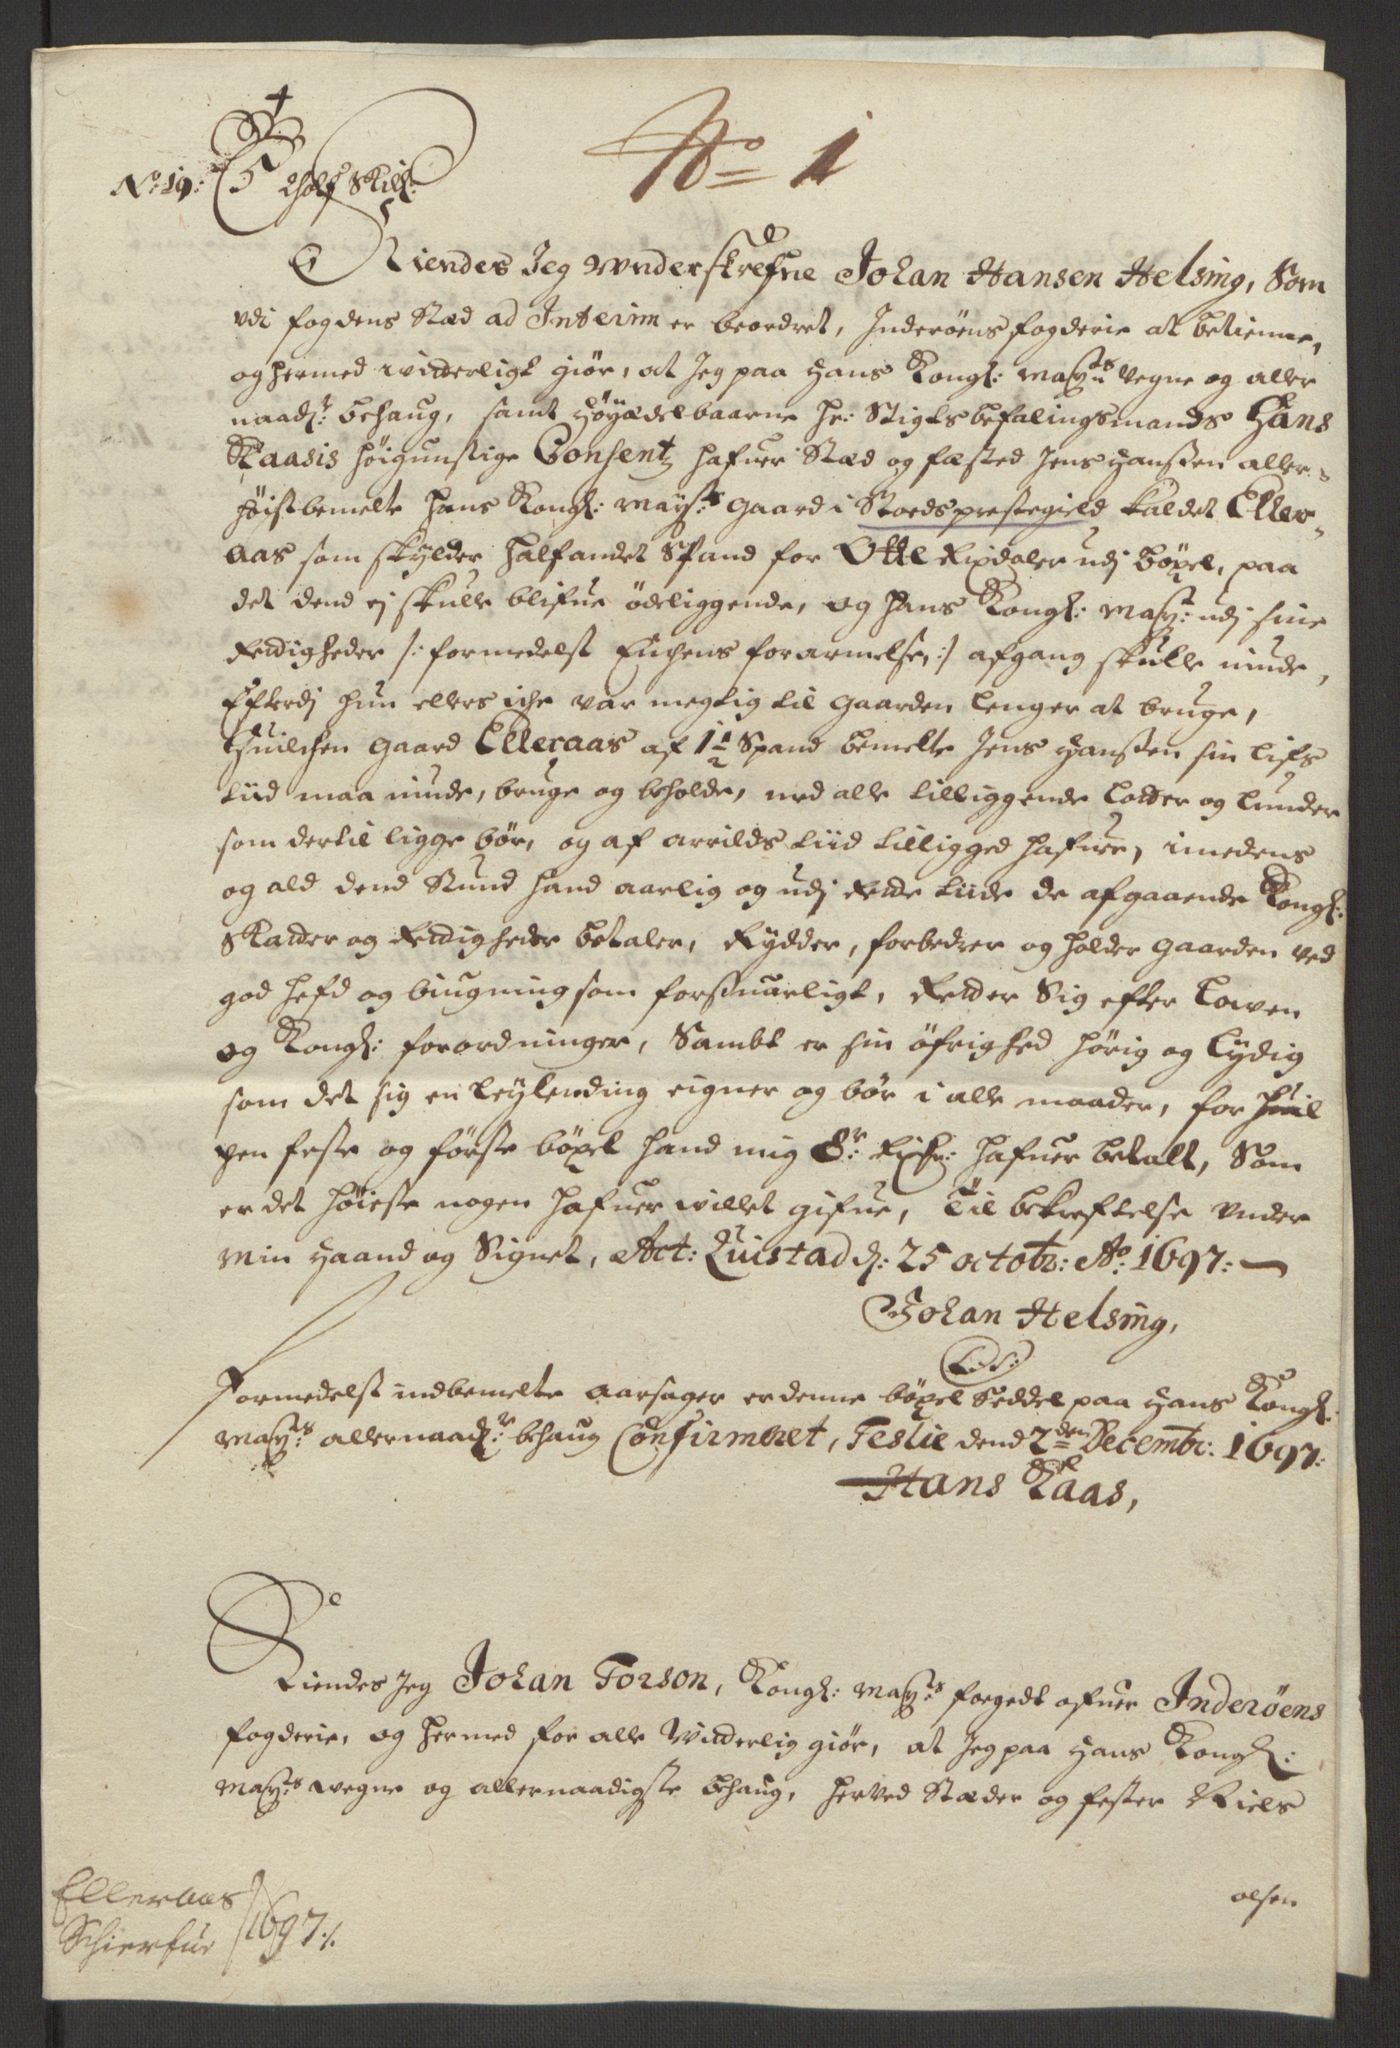 No 1
No: 19: Tholf Skill:
Kiendes Jeg Vnderskrefne Johan Hansen Helsing, Som
udi fogdens Stæd ad Interim er beordret, Inderøens fogderie at betienne,
og hermed vitterligt giør, at Jeg paa Hans Kongl: Mayts Vegne og aller
naadr: behaug, samt Høyædelbaarne Hr: Stigtsbefalingsmands Hans
Kaasis høigunstige Consentz hafuer Stæd og fæsted Jens Hanssen aller-
høistbemelte Hans Kongl: Mayts: gaard i Stoeds prestegield kaldet Eller-
aas som skylder halfandet Spand for Otte Rixdaler udj böxel, paa
det dend ej skulle blifue ödeliggende, og Hans Kongl: Mayt: udj sine
Rettigheder /: formedelst Enchens forarmelse :/ afgang skulle niude,
Efterdj hun ellers iche var megtig til gaarden lenger at bruge,
Huilchen gaard Elleraas af 1 1/2 Spand bemelte Jens Hanssen sin lifs
tiid maa niude, bruge og beholde, med alle tilliggende lotter og lunder
som dertil ligge bör, og af arrilds tiid tilligged hafuer, imedens
og ald dend Stund hand aarlig og udj rette tiide de afgaaende Kongl:
Skatter og Rettigheder betaler, Rydder, forbedrer og holder gaarden ved
god hefd og biugning som forsuarligt, Retter Sig efter Lowen
og Kongl: forordninger, Sambt er sin öfrighed hörig og lydig
som det sig en leylending eigner og bör i alle maader, for huil
chen feste og förste böxel hand mig 8r: Rixdr: hafuer betalt, Som
er det höieste nogen hafuer villet gifue, Til bekreftelse under
Min Haand og Signet, Act: Quistad d: 25 octobr: Ao: 1697:
Johan Helsing,
(L.S.)
Formedelst indbemelte aarsager er denne böxel Seddel paa Hans Kongl:
Mayts: allernaadr: behaug Confirmeret, Teslie dend 2den Decembr: 1697:
Hans Kaas,
Kiendes Jeg Johan Torson, Kongl: Mayts: foegedt ofuer Inderöens
fogderie, og hermed for alle Vitterlig giör, at Jeg paa Hans Kongl:
Mayts: wegne og allernaadigste behaug, herved Stæder og fester Niels
olsen
Elleraas
Schierfue 1697:/.